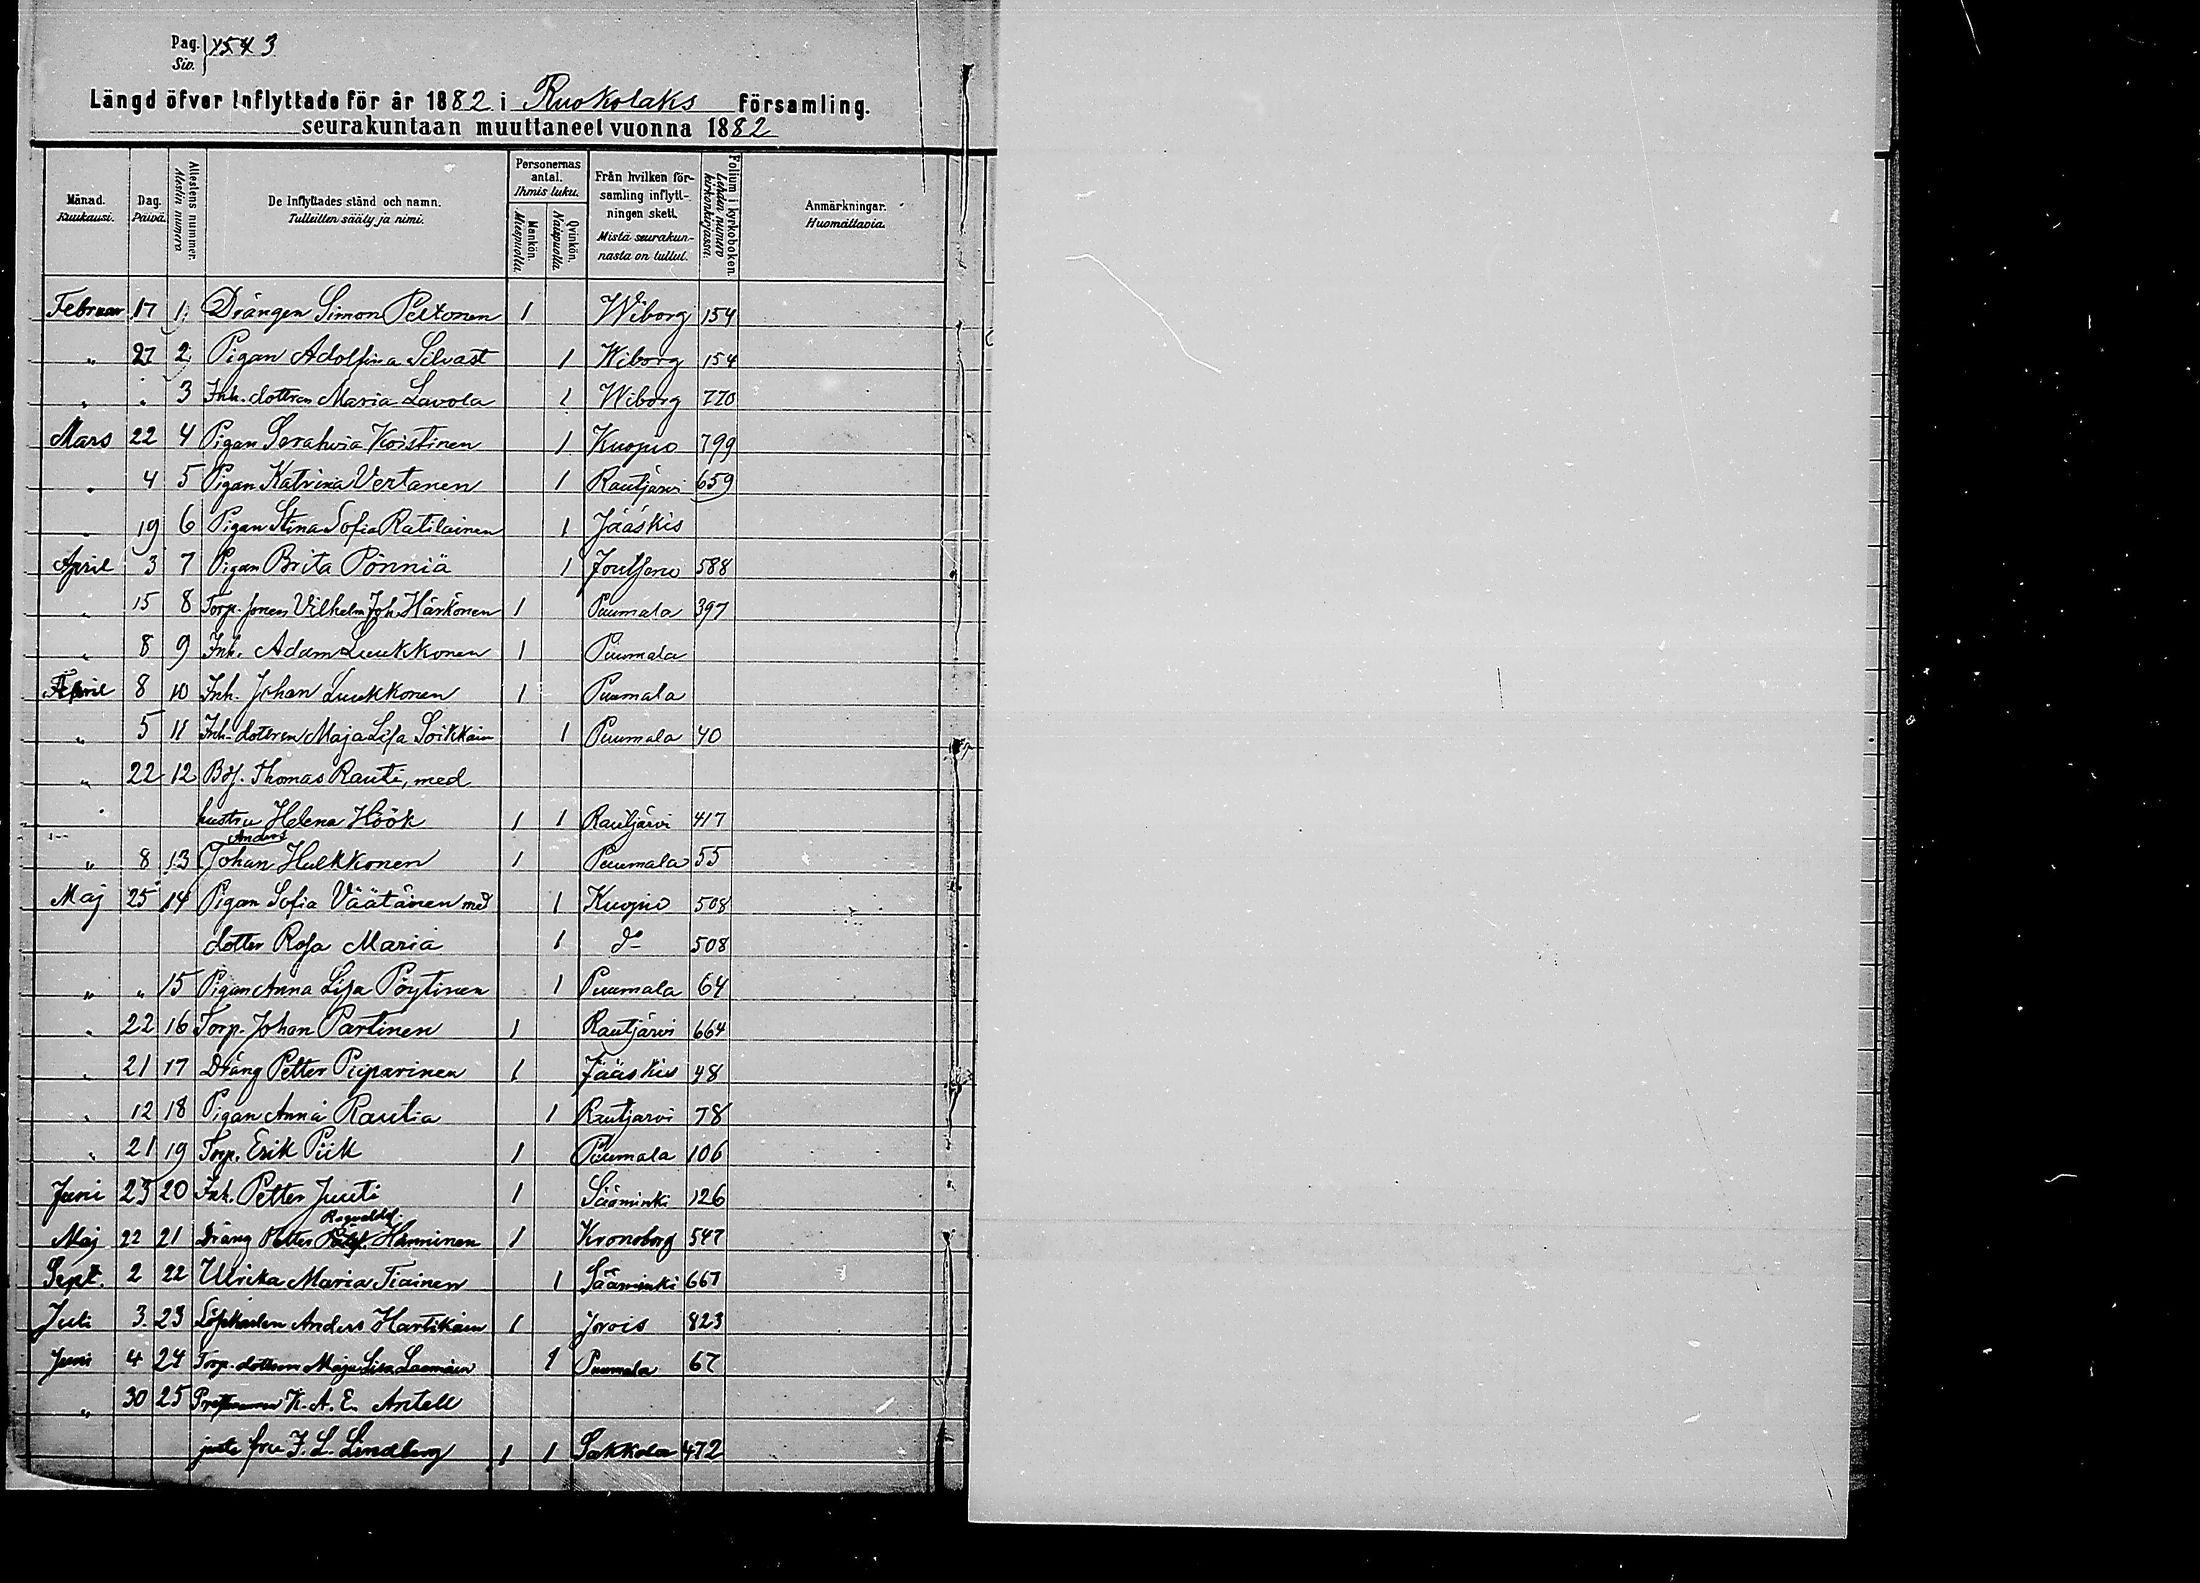 Pag. 1543
Siv.
Längd öfver Inflyttade för år 1882 i Ruokolaks församling.
seurakuntaan muuttaneet vuonna 1882
Månad. Kuukausi. Dag. Päivä. Attestens nummer. Atestin numero De Inflyttades stånd och namn. Tulleitten sääty ja nimi. Personernas antal. Ihmis luku. Mankön. Miespuolia Qvinkön. Naispuolia Från hvilken församling inflyttningen skett. Mistä seurakunnasta on tullut. Folium i kyrkoboken. Lehden numero kirkonkirjassa. Anmärkningar. Huomattavia.
Februar 17 1 Drängen Simon Peltonen 1 Wiborg 154
" 27 2 Pigan Adolfina Silvast 1 Wiborg 154
" " 3 Inh. dottren Maria Lavola 1 Wiborg 770
Mars 22 4 Pigan Serahvia Koistinen 1 Kuopio 799
" 4 5 Pigan Katrina Vertanen 1 Rautjärvi 659
" 19 6 Pigan Stina Sofia Ratilainen 1 Jääskis
April 3 7 Pigan Brita Pönniä 1 Joutseno 588
" 15 8 Torp. sonen Vilhelm Joh. Härkönen 1 Puumala 397
" 8 9 Inh. Adam Luukkonen 1 Puumala
April 8 10 Inh. Johan Luukkonen 1 Puumala
" 5 11 Inh. dottren Maja Lisa Soikkain 1 Puumala 40
" 22 12 Bdf. Thomas Rauti, med
hustru Helena Höök 1 1 Rautjärvi 417
Anders
" 8 13 Johan Hulkkonen 1 Puumala 55
Maj 25 14 Pigan Sofia Väätänen med 1 Kuopio 508
dotter Rosa Maria 1 d:o 508
" " 15 Pigan Anna Lisa Pöytinen 1 Puumala 64
" 22 16 Torp. Johan Partinen 1 Rautjärvi 664
" 21 17 Dräng Petter Piiparinen 1 Jääskis 48
" 12 18 Pigan Anna Rautia 1 Rautjärvi 78
" 21 19 Torp. Erik Piik 1 Puumala 106
Juni 23 20 Inh. Petter Juuti 1 Sääminki 126
Maj 22 21 Dräng Petter Hänninen 1 Kronoborg 547
Sept. 2 22 Ulrika Maria Tiainen 1 Sääminki 667
Juli 3 23 Löskarlen Anders Hartikain 1 Jorois 823
Juni 4 24 Torp. dottren Maja Lisa 1 Puumala 67
" 30 25 K. A. E. Antell
jemte fru J. L. Lindberg 1 1 Sakkola 472